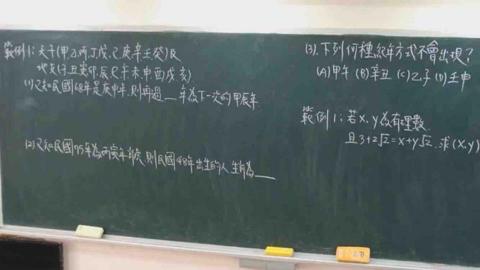 範例1:天干(甲乙丙丁戊己庚辛壬癸)及
地支(子丑寅卯辰巳午未申酉戌亥)
則再過__年為下一次的甲辰年
(2)已知民國75年為丙寅年
出生的人生肖為__
(3).下列何種紀年方式不會出現?
(A)甲午 (B)辛丑 (C)乙子 (D)壬申
範例1:若x、y為有理數
且3+2√2=x+y√2.求(x,y)